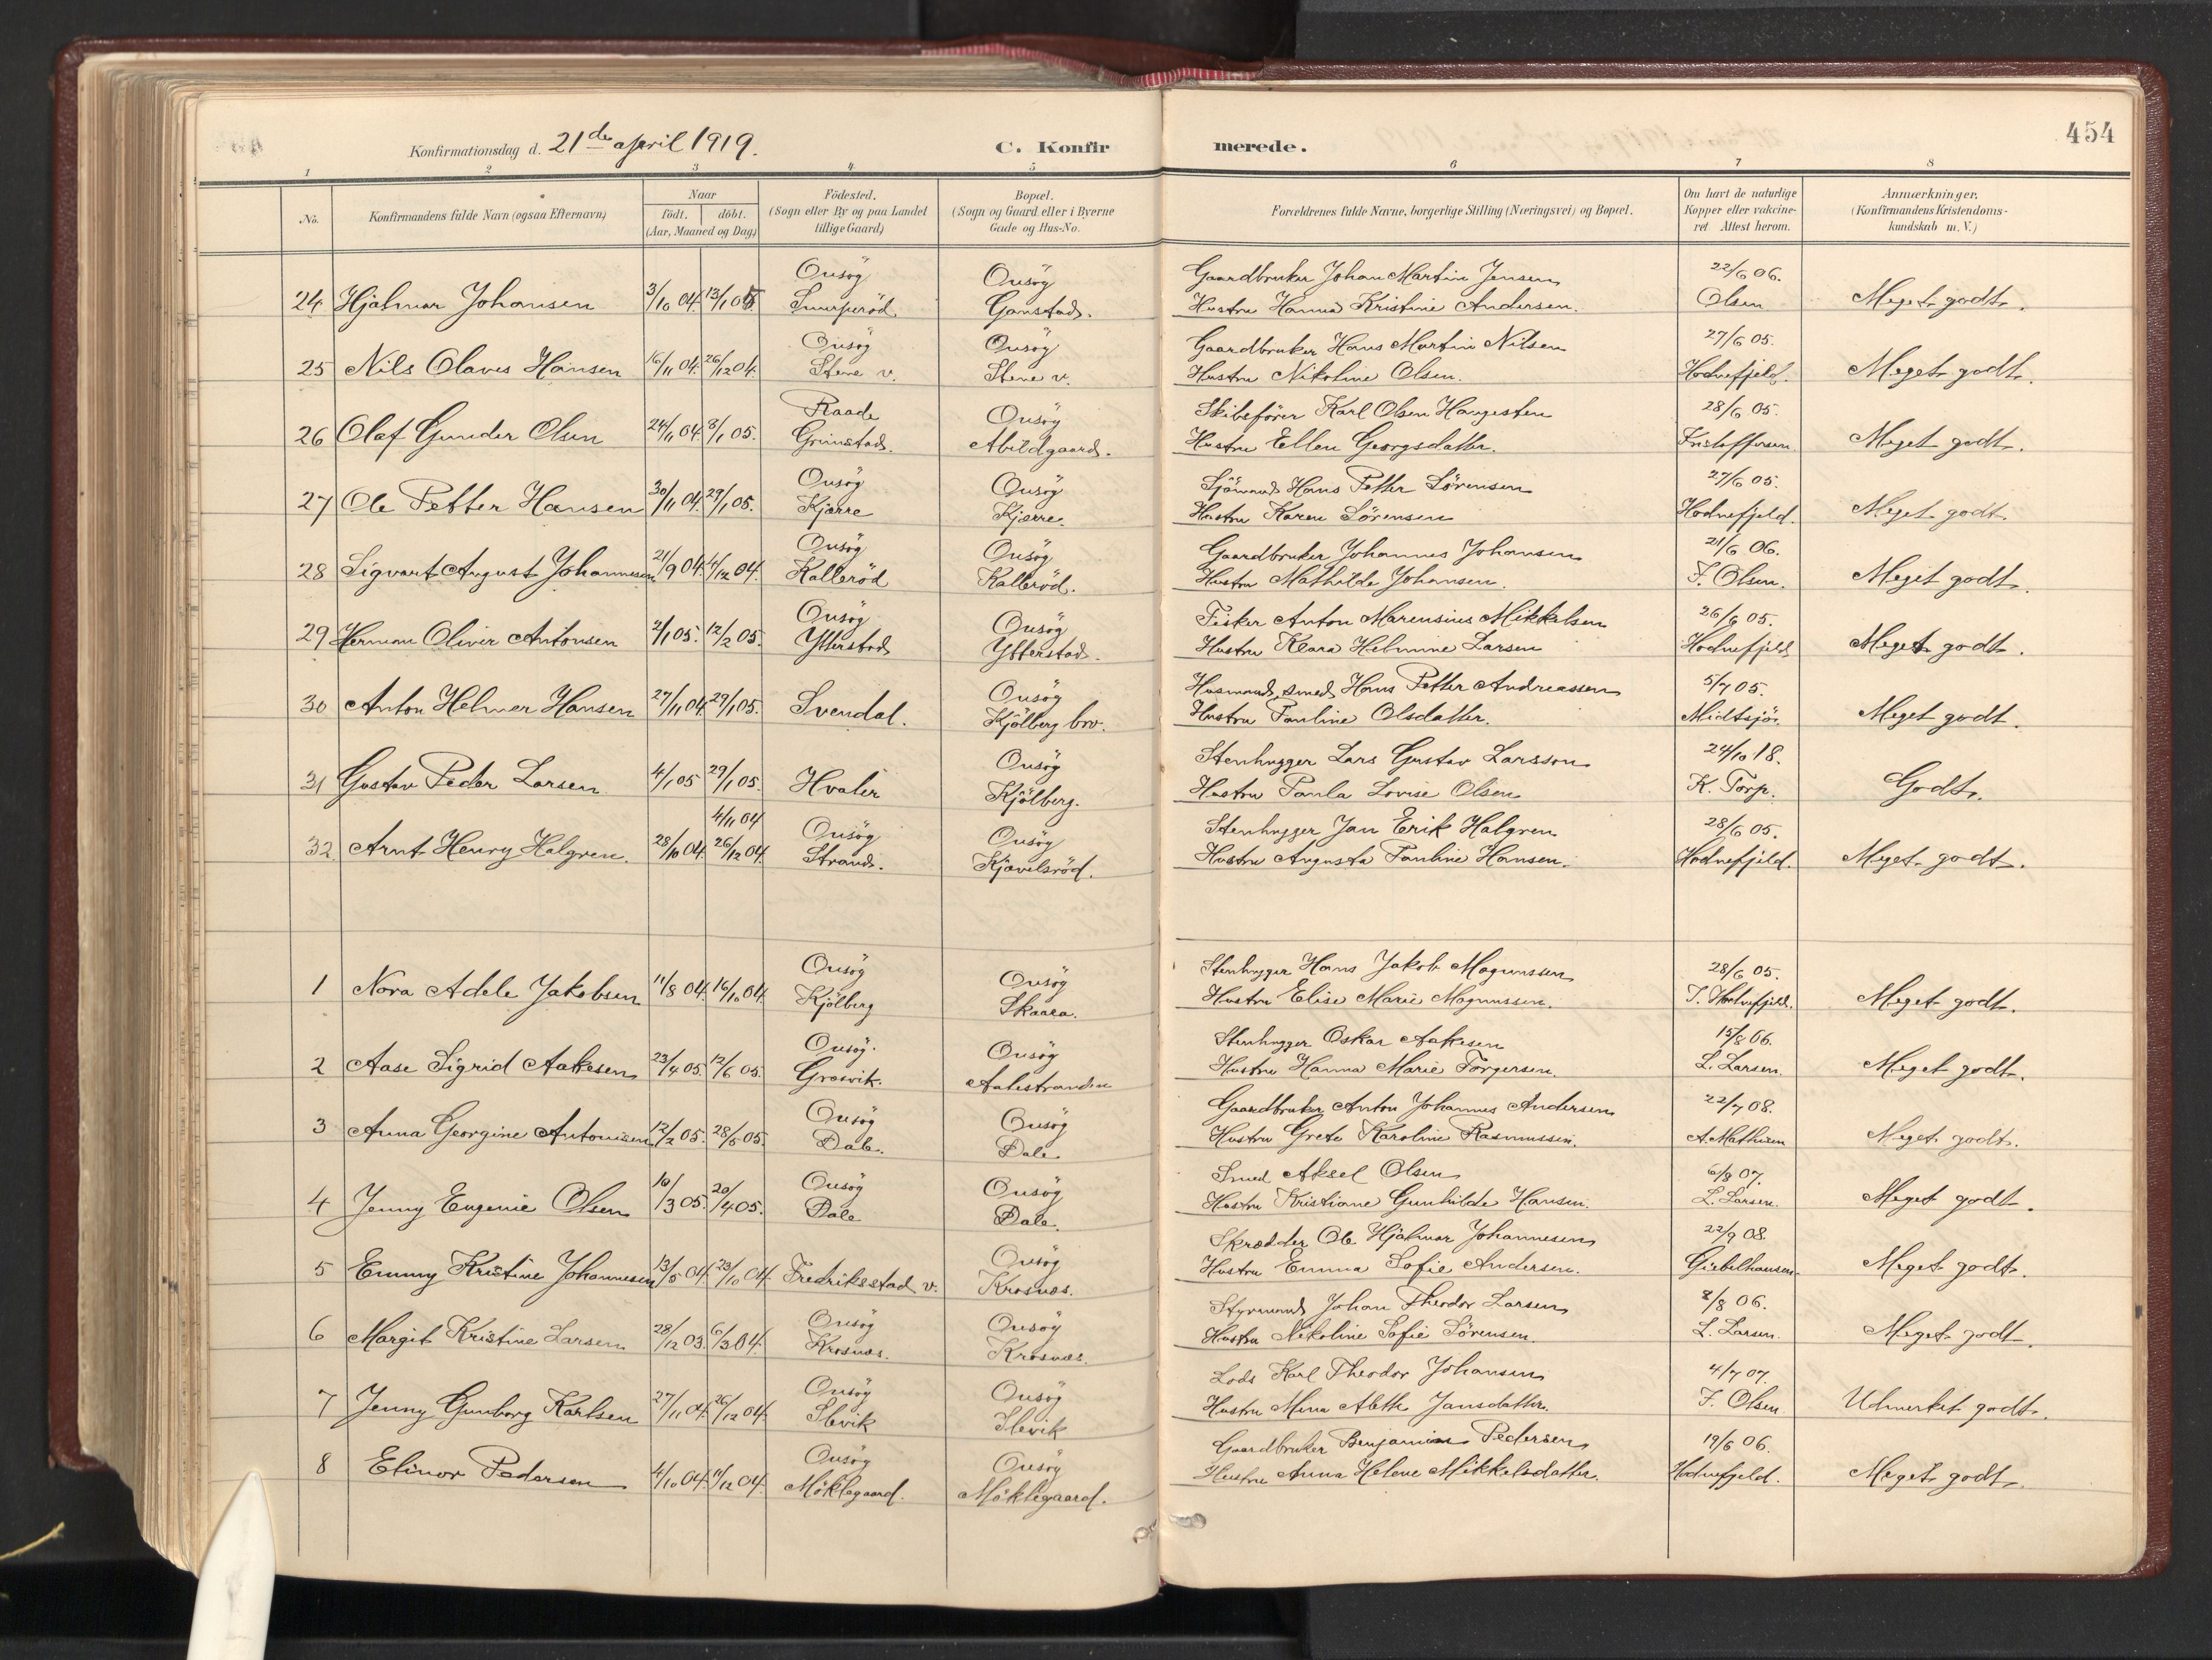 Konfirmationsdag d. 21de april 1919.
C. Konfirmerede.
454
1 2 3 4 5 6 7 8
No. Konfirmandens fulde Navn (ogsaa Efternavn) Naar født. døbt. (Aar, Maaned og Dag) Födested. (Sogn eller By og paa Landet tillige Gaard) Bopæl. (Sogn og Gaard eller i Byerne Gade og Hus-No. Forældrenes fulde Navne, borgerlige Stilling (Næringsvei) og Bopæl. Om havt de naturlige Kopper eller vakcineret Attest herom. Anmærkninger. (Konfirmandens Kristendomskundskab m. V.)
Onsøy Onsøy Gaardbruker Johan Martin Jensen 22/6 06.
24 Hjalmar Johansen 3/10 04. 13/1 05. Smerperöd. Ganstad. Hustru Hanna Kristine Andersen. Olsen Meget godt.
Onsøy Onsøy Gaardbruker Hans Martin Nilsen 27/6 05.
25 Nils Olaves Hansen 16/11 04. 26/12 04. Stene v. Stene v. Hustru Nikoline Olsen. Hodnefjeld. Meget godt.
Raade Onsøy Skibsfører Karl Olsen Haugesten 28/6 05.
26 Olaf Gunder Olsen 24/11 04. 8/1 05. Grimstad. Abildgaard. Hustru Ellen Georgsdatter. Kristoffersen Meget godt.
Onsøy Onsøy Sjömand Hans Petter Sörensen 27/6 05.
27 Ole Petter Hansen 30/11 04. 29/1 05. Kjærre Kjærre. Hustru Karen Sörensen Hodnefjeld. Meget godt.
Onsøy Onsøy Gaardbruker Johannes Johansen 21/6 06.
28 Sigvart August Johannesen 21/9 04. 4/12 04. Kalleröd Kalleröd. Hustru Mathilde Johansen. F. Olsen. Meget godt.
Onsøy Onsøy Fisker Anton Marensius Mikkelsen 26/6 05.
29 Herman Oliver Antonsen 2/1 05. 12/2 05. Ytterstad Ytterstad. Hustru Klara Helmine Larsen Hodnefjeld Meget godt.
Onsøy Husmand, smed Hans Petter Andreassen 5/7 05.
30 Anton Helmer Hansen 27/11 04. 29/1 05. Svendal. Kjölberg bro. Hustru Pauline Olsdatter. Midtsjö. Meget godt.
Onsøy Stenhugger Lars Gustav Larsson 24/10 18.
31 Gustav Peder Larsen 4/1 05 29/1 05. Hvaler Kjölberg. Hustru Paula Lovise Olsen K. Torp. Godt.
4/11 04 Onsøy Onsøy Stenhugger Jan Erik Halgren 28/6 05.
32. Arnt Henry Halgren. 28/10 04. 26/12 04. Strand. Kjævelsröd. Hustru Augusta Pauline Hansen. Hodnefjeld. Meget godt.
Onsøy Onsøy Stenhugger Hans Jakob Magnussen 28/6 05.
1 Nora Adele Jakobsen 11/8 04. 16/10 04. Kjölberg Skaara. Hustru Elise Marie Magnussen. T. Hodnefjeld. Meget godt.
Onsøy. Onsøy Stenhugger Oskar Aakesen 15/8 06.
2 Aase Sigrid Aakesen 23/4 05. 12/6 05. Gresvik. Aalestranden Hustru Hanna Marie Torgersen. L. Larsen. Meget godt.
Onsøy Onsøy Gaardbruker Anton Johannes Andersen 22/7 08.
3 Anna Georgine Antonisen 12/2 05. 28/5 05. Dale. Dale Hustru Grete Karoline Rasmussen. A. Mathisen Meget godt.
Onsøy Onsøy Smed Aksel Olsen 6/8 07.
4 Jenny Eugenie Olsen 10/3 05. 20/4 05. Dale Dale. Hustru Kristiane Gunhilde Hansen. L. Larsen. Meget godt.
Onsøy Skrædder Ole Hjalmar Johannesen 22/9 08.
5 Emmy Kristine Johannesen 13/5 04. 23/10 04. Fredriksstad v. Krosnæs. Hustru Emma Sofie Andersen. Giebelhausen. Meget godt.
Onsøy Onsøy Styrmand Johan Theodor Larsen 8/8 06.
6 Margit Kristine Larsen 28/12 03. 6/3 04. Krosnæs. Krosnæs. Hustru Nikoline Sofie Sörensen. L. Larsen. Meget godt.
Onsøy Onsøy Lods Karl Theodor Johansen 4/7 07.
7 Jenny Gunborg Karlsen 27/11 04. 26/12 04. Slevik Slevik Hustru Mina Alette Jansdatter. F. Olsen Udmerket godt.
Onsøy Onsøy Gaardbruker Benjamin Pedersen 19/6 06.
8 Elinor Pedersen 4/10 04. 11/12 04. Möklegaard. Möklegaard. Hustru Anna Helene Mikkelsdatter. Hodnefjeld. Meget godt.